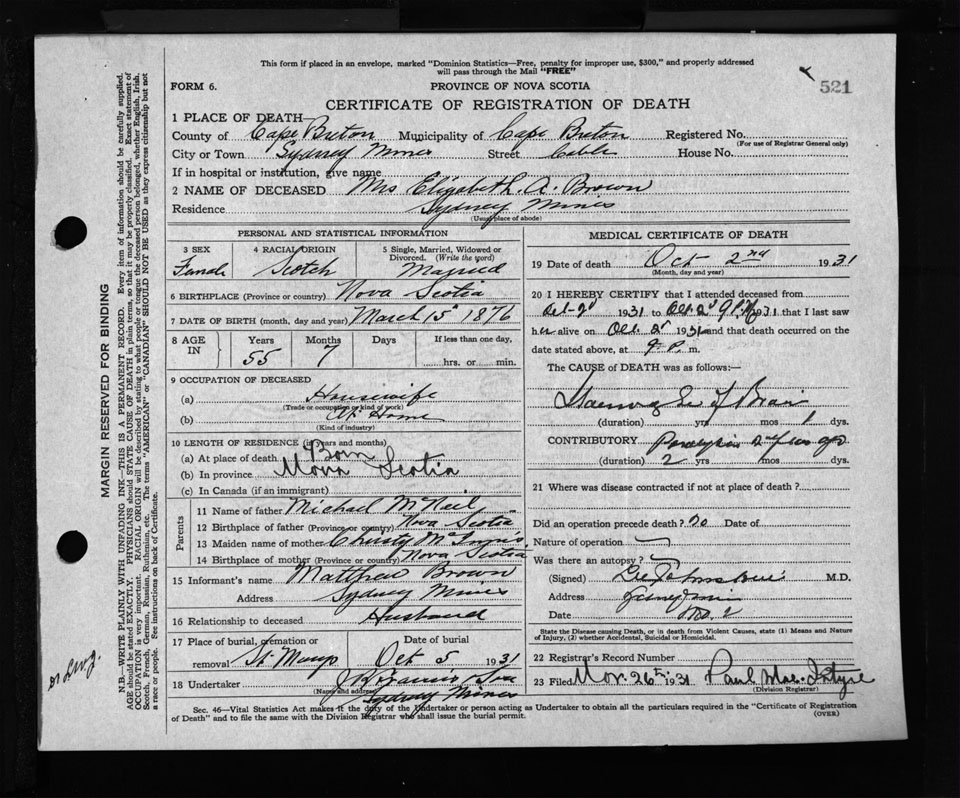 This form if placed in an envelope, marked "Dominion Statistics—Free, penalty for improper use, $300," and properly addressed
will pass through the Mail "FREE"
521
FORM 6.
PROVINCE OF NOVA SCOTIA
CERTIFICATE OF REGISTRATION OF DEATH
1 PLACE OF DEATH—
County of Cape Breton Municipality of Cape Breton Registered No.
(For use of Registrar General only)
City or Town Sydney Mines Street Cable House No.
If in hospital or institution, give name
2 NAME OF DECEASED Mrs Elizabeth. A. Brown
Residence Sydney Mines
(Usual place of abode)
PERSONAL AND STATISTICAL INFORMATION
3 SEX
Female
4 RACIAL ORIGIN
Scotch
5 Single, Married, Widowed or
Divorced. (Write the word)
Married
6 BIRTHPLACE (Province or country) Nova Scotia
7 DATE OF BIRTH (month, day and year) March 15 1876
8 AGE
IN
Years
55
Months
7
Days
If less than one day,
hrs. or min.
9 OCCUPATION OF DECEASED
(a) Housewife
(Trade or occupation or kind of work)
(b) At Home
(Kind of industry)
10 LENGTH OF RESIDENCE (in years and months)
(a) At place of death Born
(b) In province Nova Scotia
(c) In Canada (if an immigrant)
Parents
11 Name of father Michael McNeil
12 Birthplace of father (Province or country) Nova Scotia
13 Maiden name of mother Christy McInnis
14 Birthplace of mother (Province or country) Nova Scotia
15 Informant's name Matthew Brown
Address Sydney Mines
16 Relationship to deceased Husband
17 Place of burial, cremation or
removal St. Marys
Date of burial
Oct 5 1931
18 Undertaker
(Name and address)
Sydney Mines
MEDICAL CERTIFICATE OF DEATH
19 Date of death Oct 2nd 1931
(Month, day and year)
20 I HEREBY CERTIFY that I attended deceased from
Oct 2 1931 to Oct 2 9 P.M. 1931 that I last saw
her alive on Oct 2 1931 and that death occurred on the
date stated above, at 9 P. m.
The CAUSE of DEATH was as follows:—
Haemorrhage of Brain
(duration) yrs mos 1 dys.
CONTRIBUTORY Paralysis 2 yrs ago
(duration) 2 yrs mos dys.
21 Where was disease contracted if not at place of death?
Did an operation precede death? no Date of
Nature of operation
Was there an autopsy?
(Signed) M.D.
Address
Date 2
State the Disease causing Death, or in death from Violent Causes, state (1) Means and Nature
of Injury, (2) whether Accidental, Suicidal or Homicidal.
22 Registrar's Record Number
23 Filed Nov. 26th 1931 Paul MacIntyre
(Division Registrar)
Sec. 46—Vital Statistics Act makes it the duty of the Undertaker or person acting as Undertaker to obtain all the particulars required in the "Certificate of Registration
of Death" and to file the same with the Division Registrar who shall issue the burial permit.
(OVER)
MARGIN RESERVED FOR BINDING
N.B.—WRITE PLAINLY WITH UNFADING INK—THIS IS A PERMANENT RECORD. Every item of information should be carefully supplied.
AGE should be stated EXACTLY. PHYSICIANS should STATE CAUSE OF DEATH in plain terms, so that it may be properly classified. Exact statement of
OCCUPATION is very important. RACIAL ORIGIN will be described by stating to what people or tongue the deceased person belonged, whether English, Irish,
Scotch, French, German, Russian, Ruthenian, etc. The terms "AMERICAN" or "CANADIAN" SHOULD NOT BE USED as they express citizenship but not
a race or people. See instructions on back of Certificate.